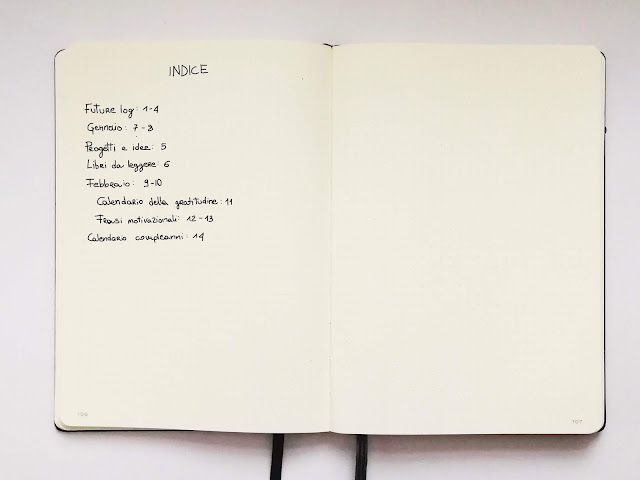 INDICE
Future log: 1-4
Gennaio: 7-8
Progetti e idee: 5
Libri da leggere: 6
Febbraio: 9-10
Calendario della gratitudine: 11
Frasi motivazionali: 12-13
Calendario compleanni: 14
106
107